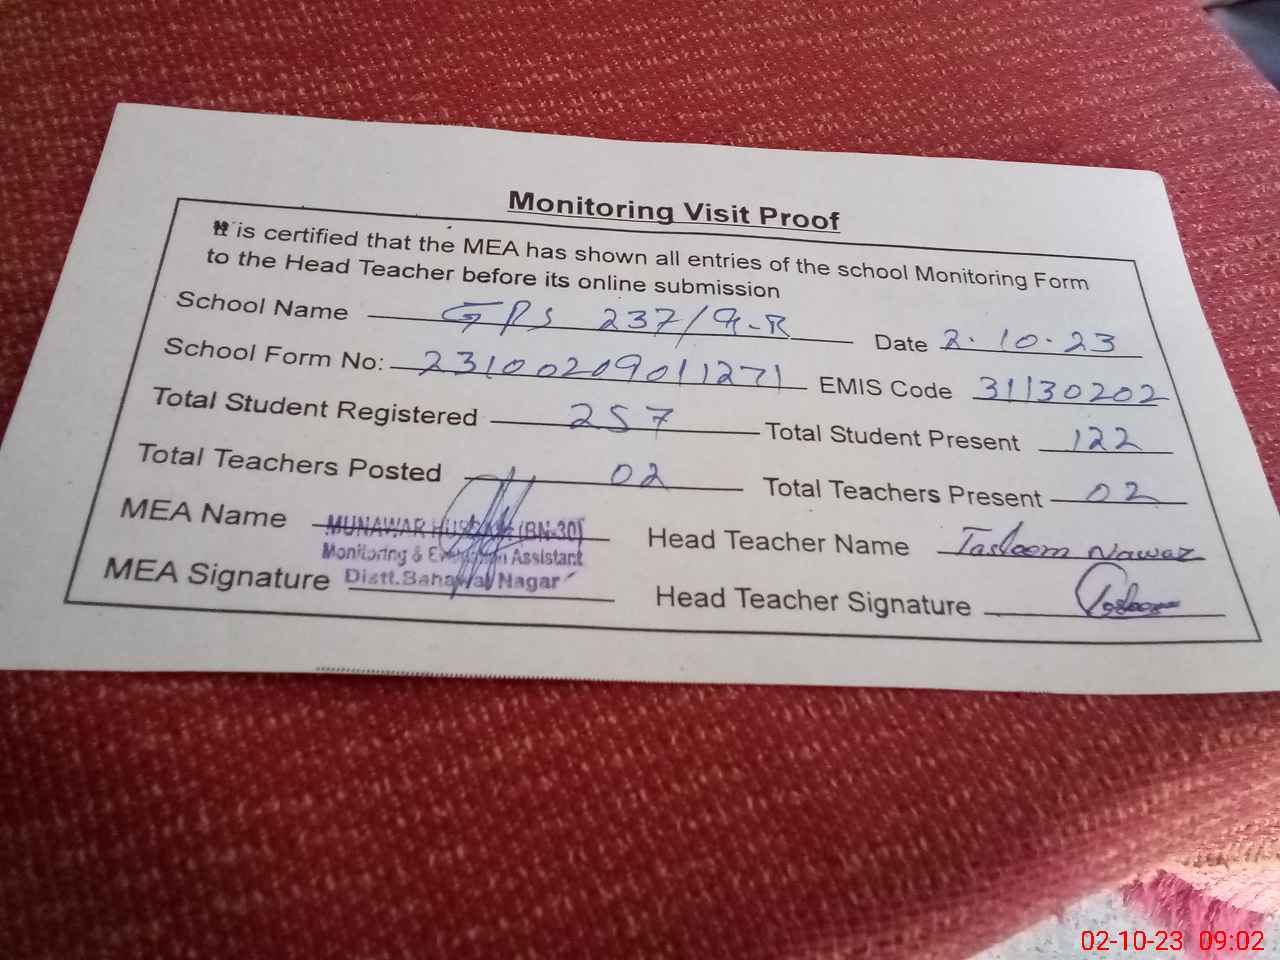 Monitoring Visit Proof
It is certified that the MEA has shown all entries of the school Monitoring Form
to the Head Teacher before its online submission
School Name GPS 237/9-R Date 2.10.23
School Form No: 23100209011271 EMIS Code 31130202
Total Student Registered 257 Total Student Present 122
Total Teachers Posted 02 Total Teachers Present 02
MEA Name MUNAWAR HUSSAIN (BN-30) Head Teacher Name Tasleem Nawaz
Monitoring & Evaluation Assistant
MEA Signature Distt. Bahawal Nagar Head Teacher Signature
02-10-23 09:02